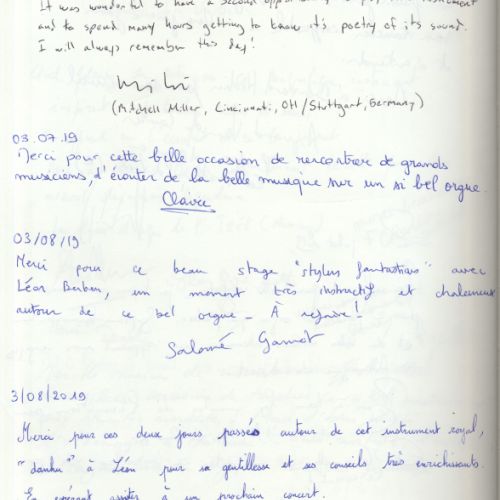 It was wonderful to have a second opportunity to play this instrument
and to spend many hours getting to know it's poetry of its sound.
I will always remember this day!
(Mitchell Miller, Cincinnati, OH/Stuttgart, Germany)
03.07.19
Merci pour cette belle occasion de rencontrer de grands
musiciens, d'écouter de la belle musique sur un si bel orgue.
Claire
03/08/19
Merci pour ce beau stage "stylus fantasticus" avec
Léon Berben, un moment très instructif et chaleureux
autour de ce bel orgue - À refaire!
Salomé Gamot
3/08/2019
Merci pour ces deux jours passés autour de cet instrument royal,
"danku" à Léon pour sa gentillesse et ses conseils très enrichissants.
En espérant assister à un prochain concert.